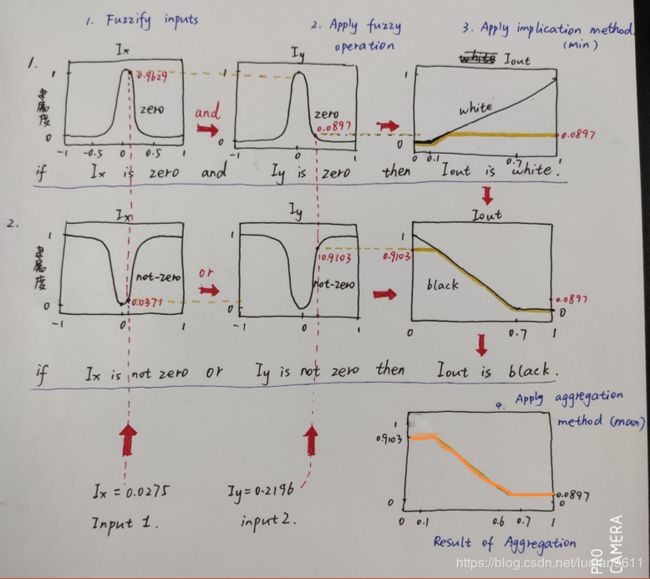 1. Fuzzify inputs
2. Apply fuzzy operation
3. Apply implication method. (min)
1.
Ix
Iy
white Iout
隶属度
1
0
0.9629
zero
-1 -0.5 0 0.5 1
and
1
0
zero
0.0897
-1 0 1
1
0
white
0.0897
0 0.1 0.7 1
if Ix is zero and Iy is zero then Iout is white.
2.
Ix
Iy
Iout
隶属度
1
0
not-zero
0.0371
-1 0 1
or
1
0
0.9103
not-zero
-1 0 1
1
0.9103
black
0.0897
0
0 0.7 1
if Ix is not zero or Iy is not zero then Iout is black.
4. Apply aggregation method (max)
1
0.9103
0
0.0897
0 0.1 0.6 0.7 1
Result of Aggregation
Ix = 0.0275
Input 1.
Iy = 0.2196
input 2.
PRO CAMERA